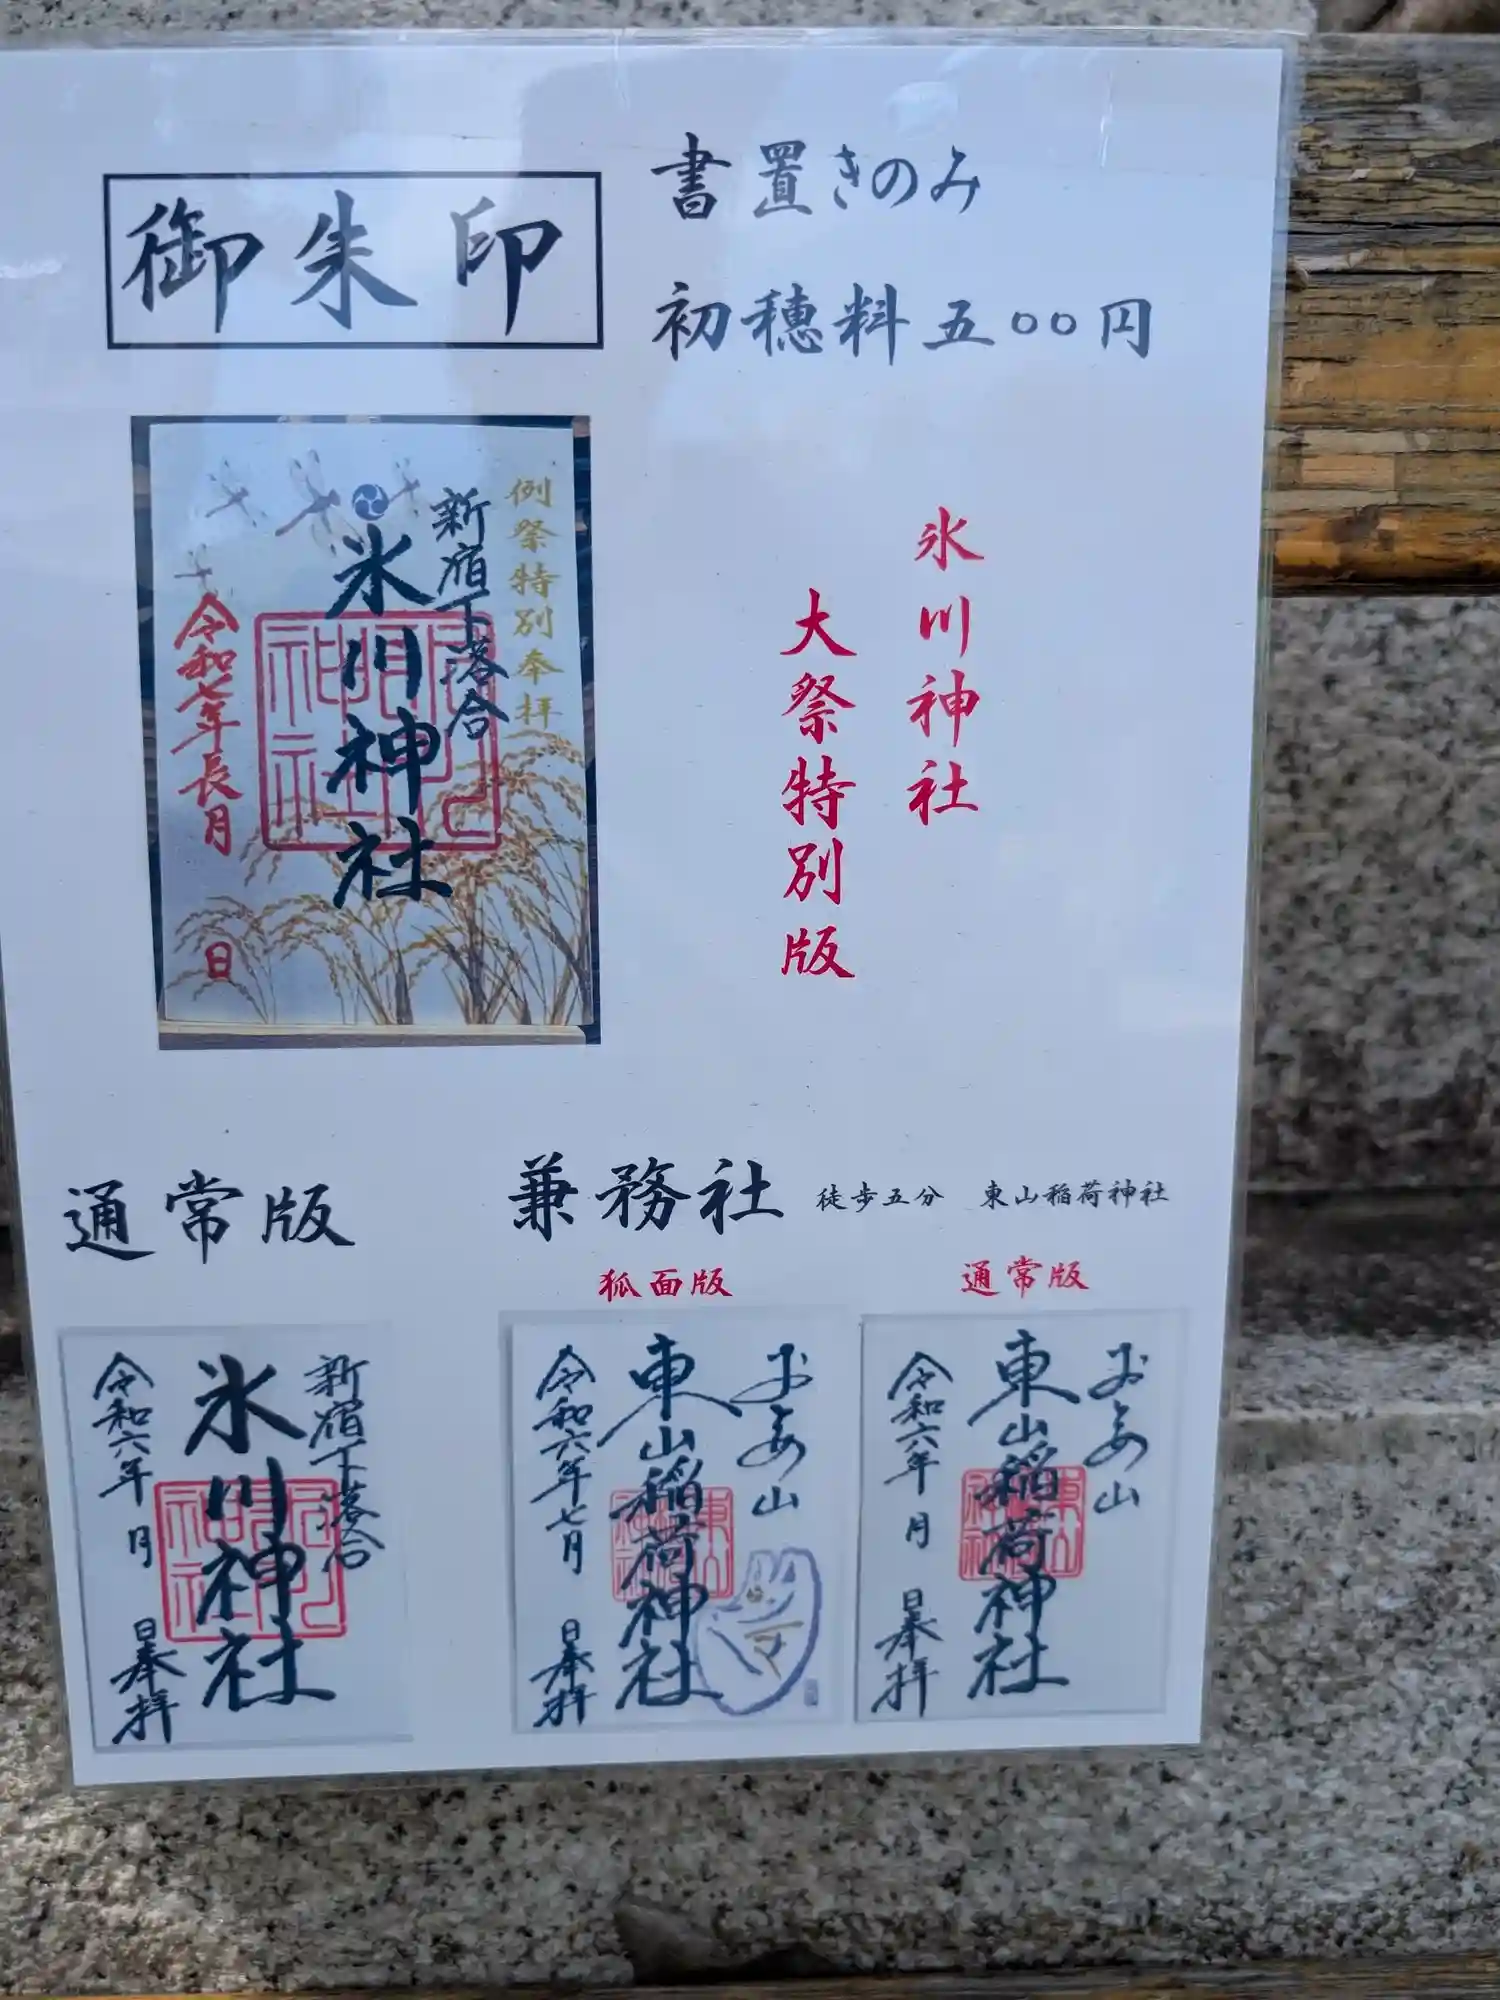 御朱印
書置きのみ
初穂料五〇〇円
氷川神社
大祭特別版
例祭特別奉拝
新宿下落合
氷川神社
令和七年長月
日
通常版
兼務社 徒歩五分 東山稲荷神社
狐面版
通常版
新宿下落合
氷川神社
令和六年 月 日奉拝
山
東山稲荷神社
令和六年七月 日奉拝
山
東山稲荷神社
令和六年 月 日奉拝